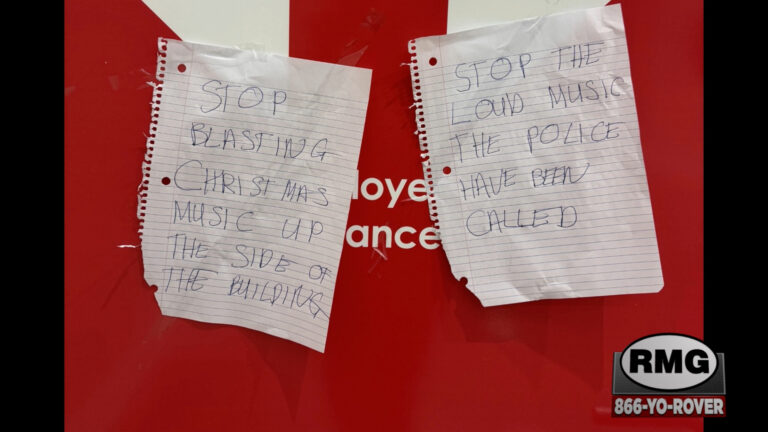 STOP
BLASTING
CHRISTMAS
MUSIC UP
THE SIDE OF
THE BUILDING
STOP THE
LOUD MUSIC
THE POLICE
HAVE BEEN
CALLED
loye
ance
RMG
866-YO-ROVER